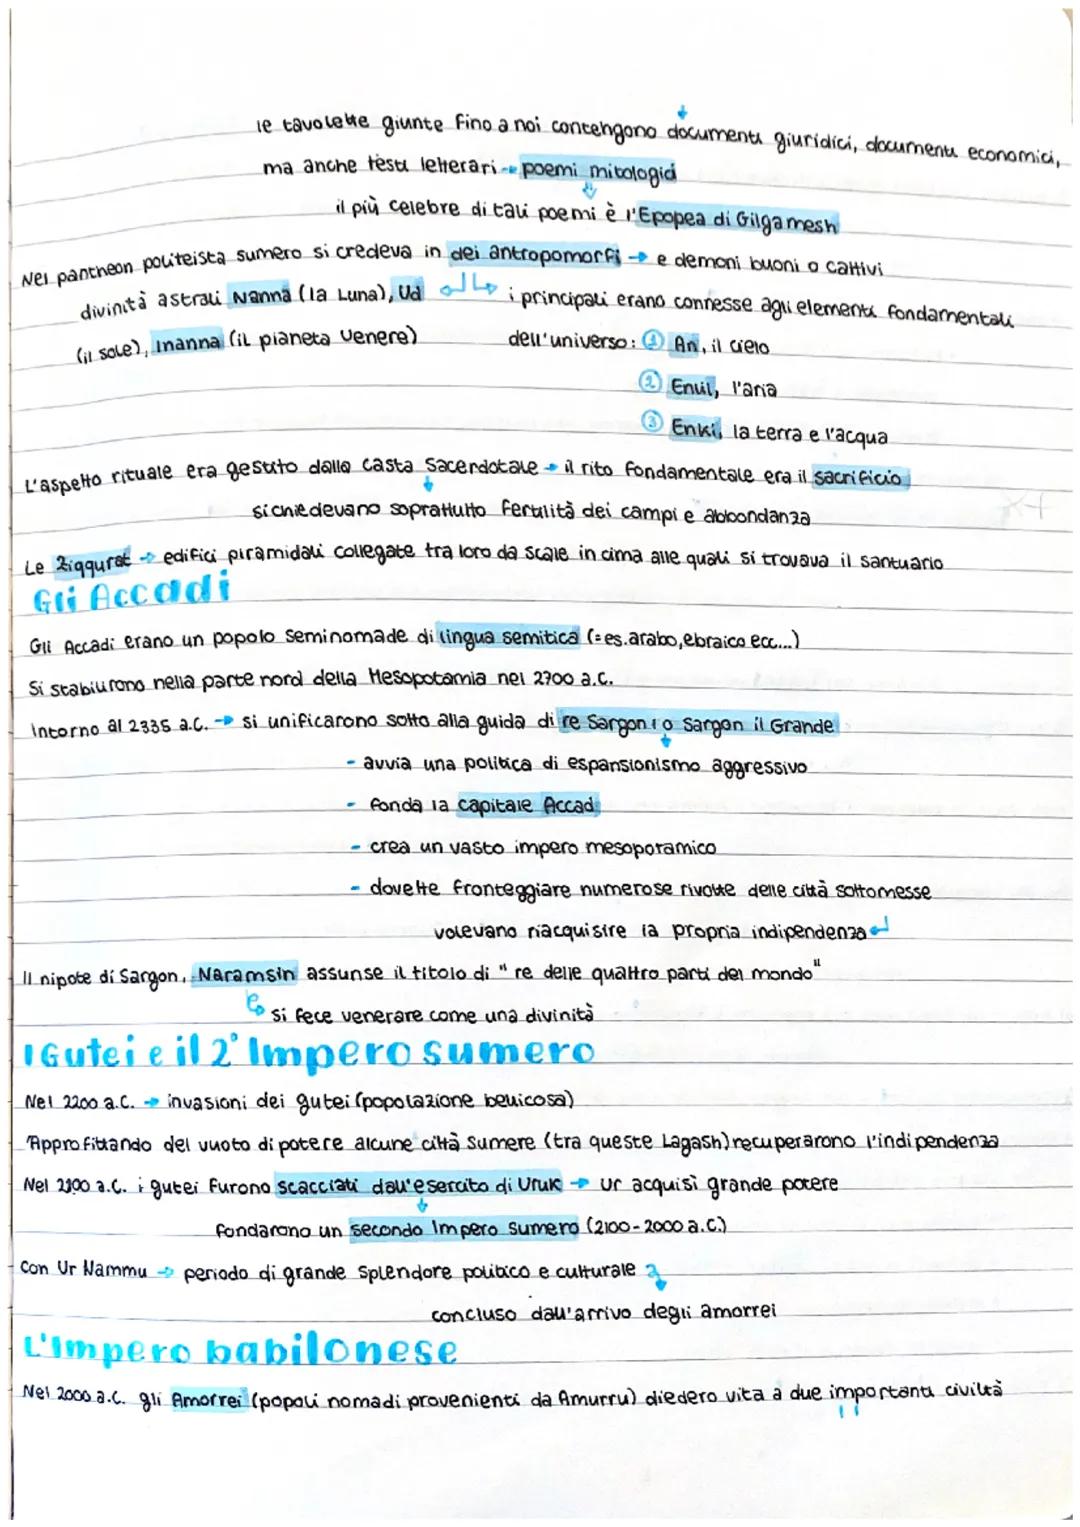 le tavolette giunte fino a noi contengono documenti giuridici, documenti economici,
ma anche testi letterari → poemi mitologici
il più celebre di tali poemi è l'Epopea di Gilgamesh
Nel pantheon politeista sumero si credeva in dei antropomorfi → e demoni buoni o cattivi
divinità astrali Nanna (la Luna), Ud i principali erano connesse agli elementi fondamentali
(il sole), Inanna (il pianeta Venere) dell'universo: ① An, il cielo
② Enlil, l'aria
③ Enki, la terra e l'acqua
L'aspetto rituale era gestito dalla casta sacerdotale → il rito fondamentale era il sacrificio
si chiedevano soprattutto fertilità dei campi e abbondanza
Le Ziqqurat → edifici piramidali collegate tra loro da scale in cima alle quali si trovava il santuario
Gli Accadi
Gli Accadi erano un popolo seminomade di lingua semitica (=es.arabo,ebraico ecc...)
Si stabilirono nella parte nord della Mesopotamia nel 2700 a.C.
Intorno al 2335 a.C. → si unificarono sotto alla guida di re Sargon I o Sargon il Grande
- avvia una politica di espansionismo aggressivo
- fonda la capitale Accad
- crea un vasto impero mesoporamico
- dovette fronteggiare numerose rivolte delle città sottomesse
volevano riacquisire la propria indipendenza
Il nipote di Sargon, Naramsin assunse il titolo di "re delle quattro parti del mondo"
si fece venerare come una divinità
I Gutei e il 2° Impero sumero
Nel 2200 a.C. → invasioni dei gutei (popolazione bellicosa)
Approfittando del vuoto di potere alcune città sumere (tra queste Lagash) recuperarono l'indipendenza
Nel 2100 a.C. i gutei furono scacciati dall'esercito di Uruk → Ur acquisì grande potere
fondarono un secondo Impero Sumero (2100-2000 a.C.)
Con Ur Nammu → periodo di grande splendore politico e culturale
concluso dall'arrivo degli amorrei
L'Impero babilonese
Nel 2000 a.C. gli Amorrei (popoli nomadi provenienti da Amurru) diedero vita a due importanti civiltà